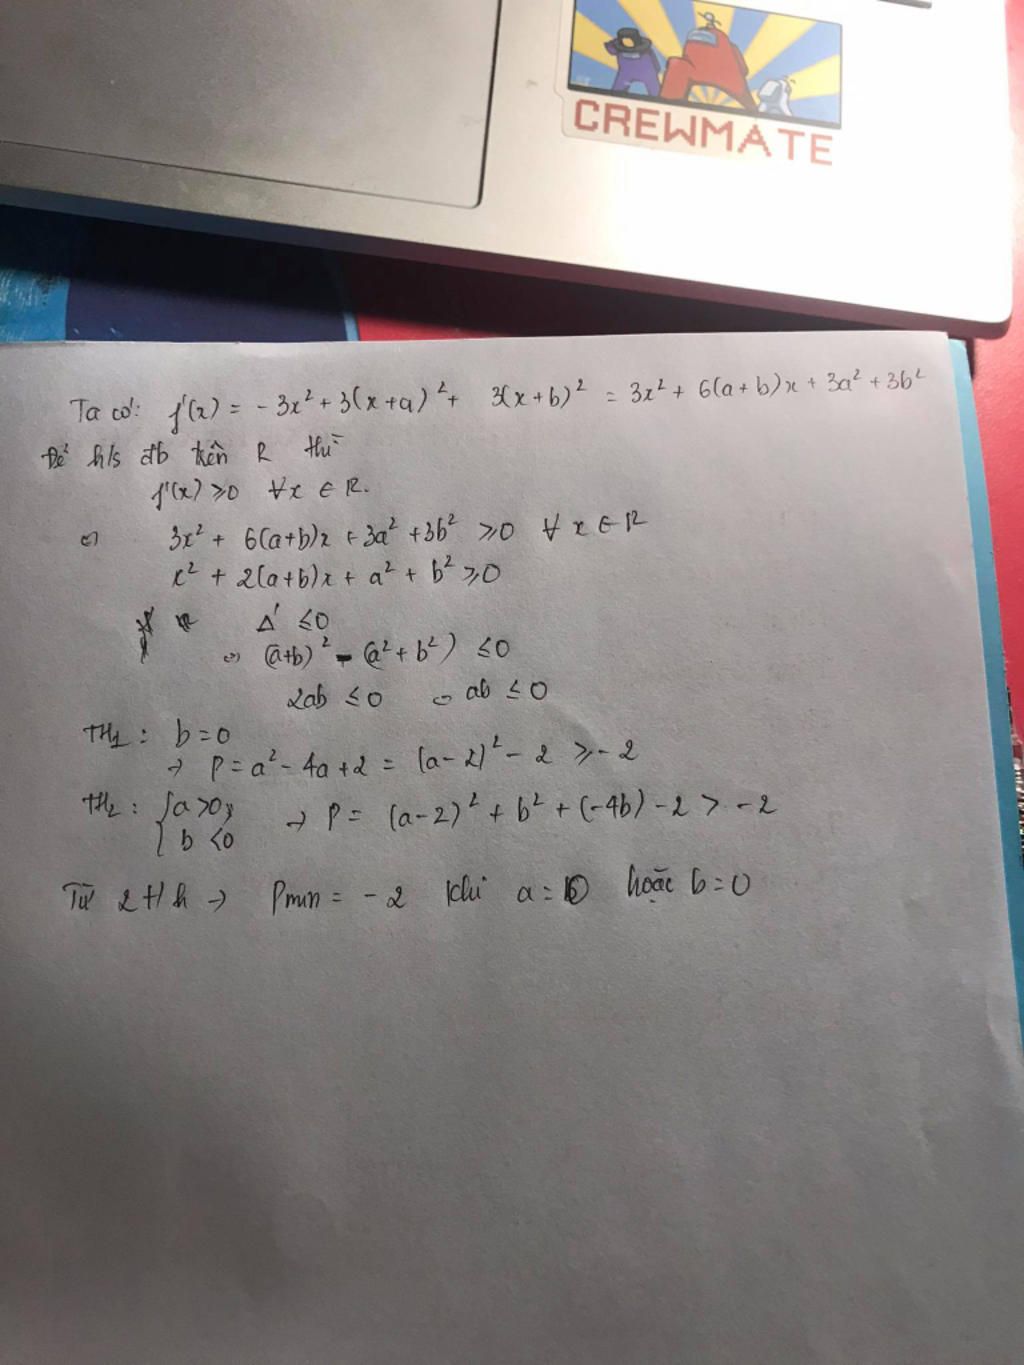 CREWMATE
Ta có: f'(x) = -3x² + 3(x+a)² + 3(x+b)² = 3x² + 6(a+b)x + 3a² + 3b²
Để h/s đb trên R thì
f'(x) ≥0 ∀x ∈ R.
⇔ 3x² + 6(a+b)x + 3a² + 3b² ≥0 ∀ x ∈ R
x² + 2(a+b)x + a² + b² ≥0
Δ' ≤0
⇔ (a+b)² - (a² + b²) ≤0
2ab ≤0 ⇔ ab ≤0
TH1: b=0
→ P = a² - 4a + 2 = (a-2)² - 2 ≥ -2
TH2: { a >0; b <0 → P = (a-2)² + b² + (-4b) - 2 > -2
Từ 2 t/h → Pmin = -2 khi a = 0 hoặc b=0